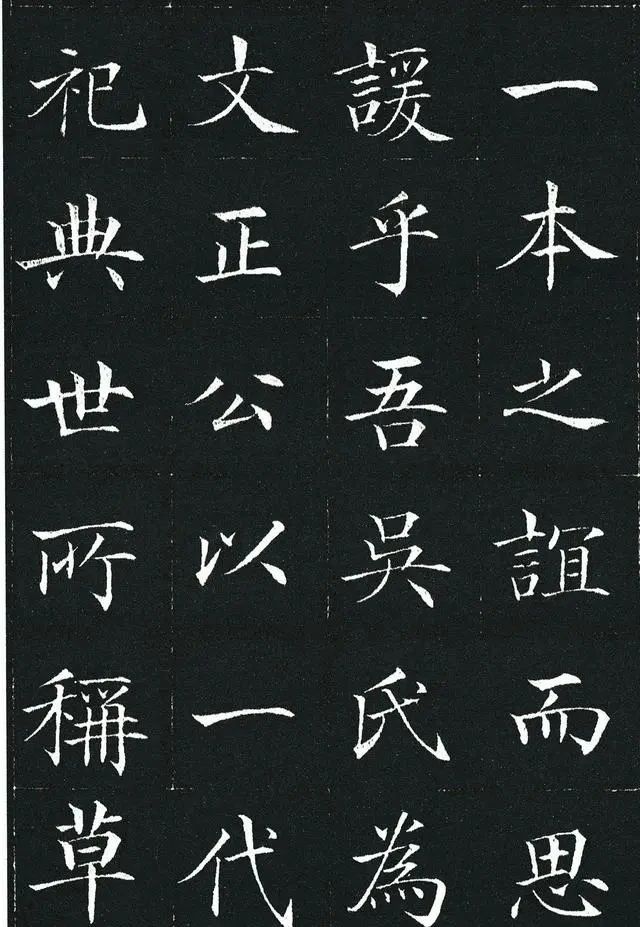 一本之誼而思
諼乎吾吳氏為
文正公以一代
祀典世所稱草